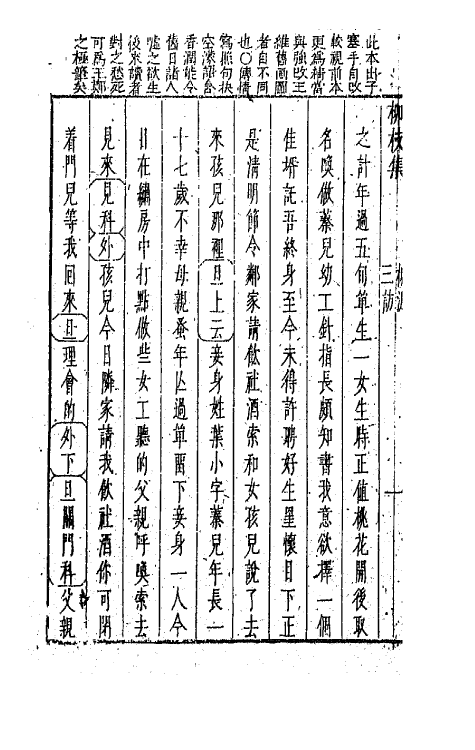 此本出子
塞手自改
較視前本
更為精當
與強改王
維舊畫圖
者自不同
也○傳情
寫照句抉
空濛語含
香潤能令
舊日諸人
噓之欲生
後來讀者
對之愁死
可為王鄭
之極筆矣
柳枝集
三訪
一
之計年過五旬單生一女生時正值桃花開後取
名喚做蓁兒幼工針指長頗知書我意欲擇一個
佳婿託吾終身至今未得許聘好生罣懷目下正
是清明節令鄰家請飲社酒索和女孩兒說了去
來孩兒那裡旦上云妾身姓葉小字蓁兒年長一
十七歲不幸母親蚤年亾過單畱下妾身一人今
日在繡房中打點做些女工聽的父親呼喚索去
見來見科外孩兒今日隣家請我飲社酒你可閉
着門兒等我回來旦理會的外下旦關門科父親